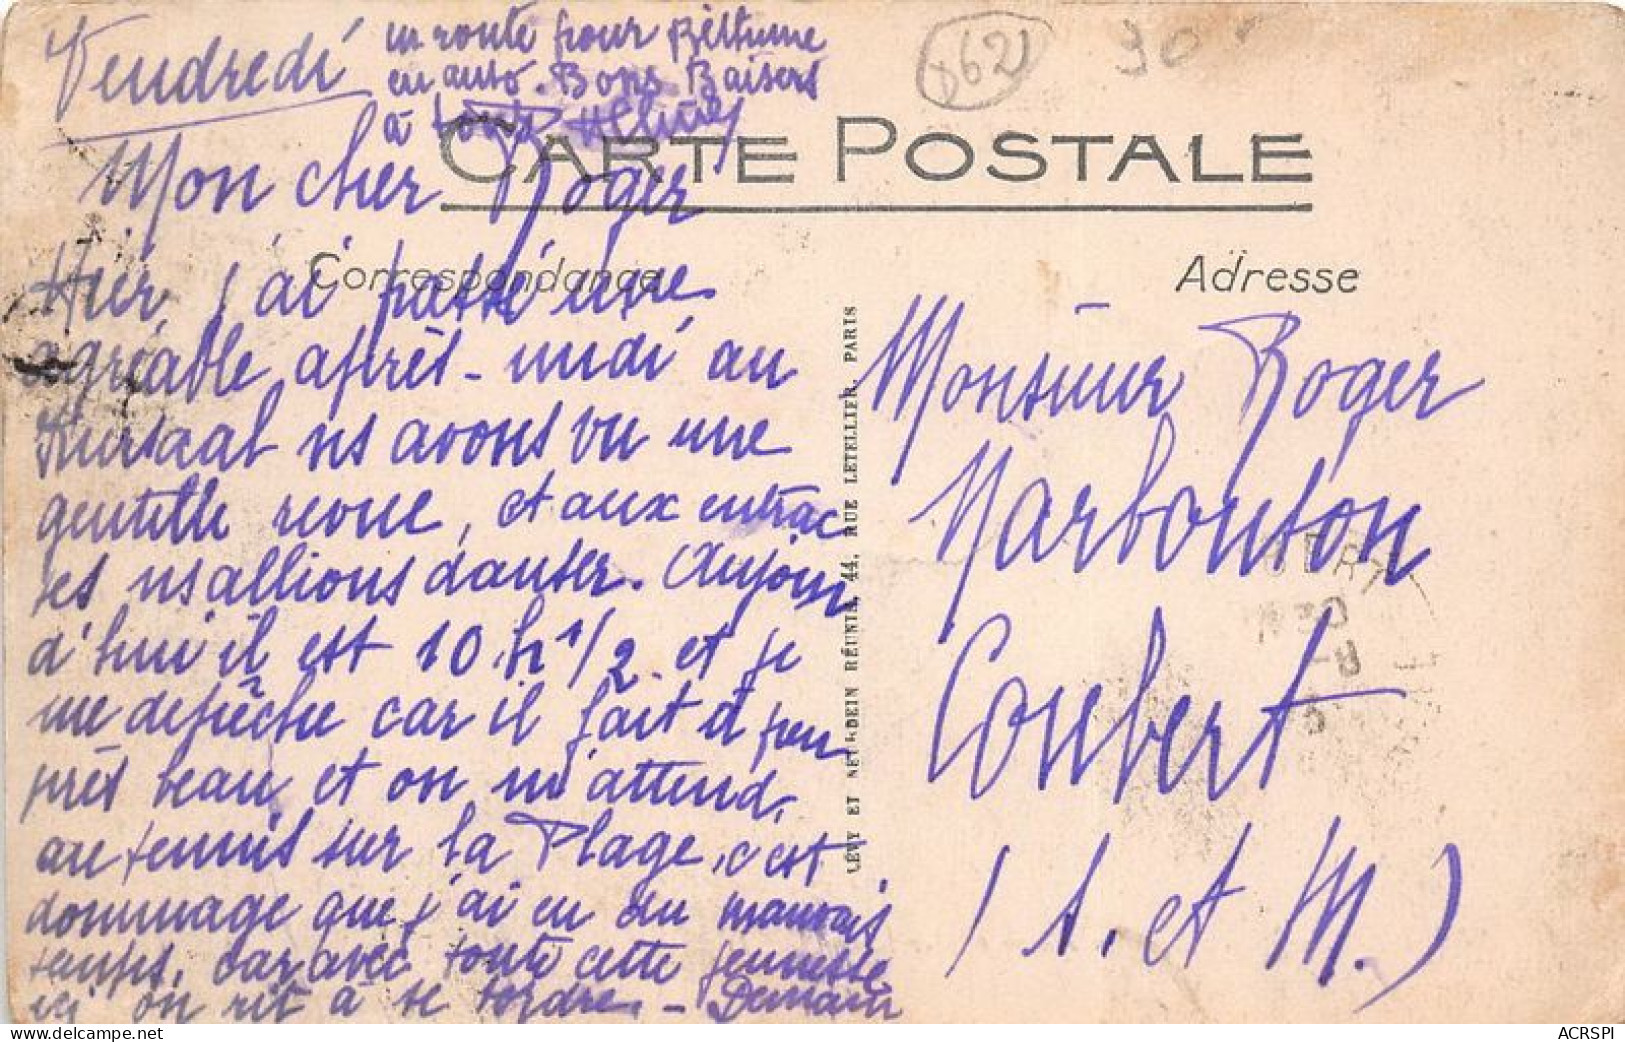 Vendredi
862
90
CARTE POSTALE
Mon cher Roger
Correspondance
Hier, j'ai passé une
agréable après-midi au
Kursaal ns avons vu une
gentille revue, et aux entrac
tes ns allions danser. Aujour
d'hui il est 10 h 1/2 et je
me dépêche car il fait à peu
près beau et on m'attend
au tennis sur la Plage, c'est
dommage que j'ai eu du mauvais
temps, car avec toute cette jeunesse
ici on rit à se tordre. - Demain
en route pour Béthune
en auto. Bons Baisers
à tous
LÉVY ET NEURDEIN RÉUNIS, 44, RUE LETELLIER, PARIS
Adresse
Monsieur Roger
Marbouton
Coubert
(S. et M.)
delcampe.net
ACRSPI